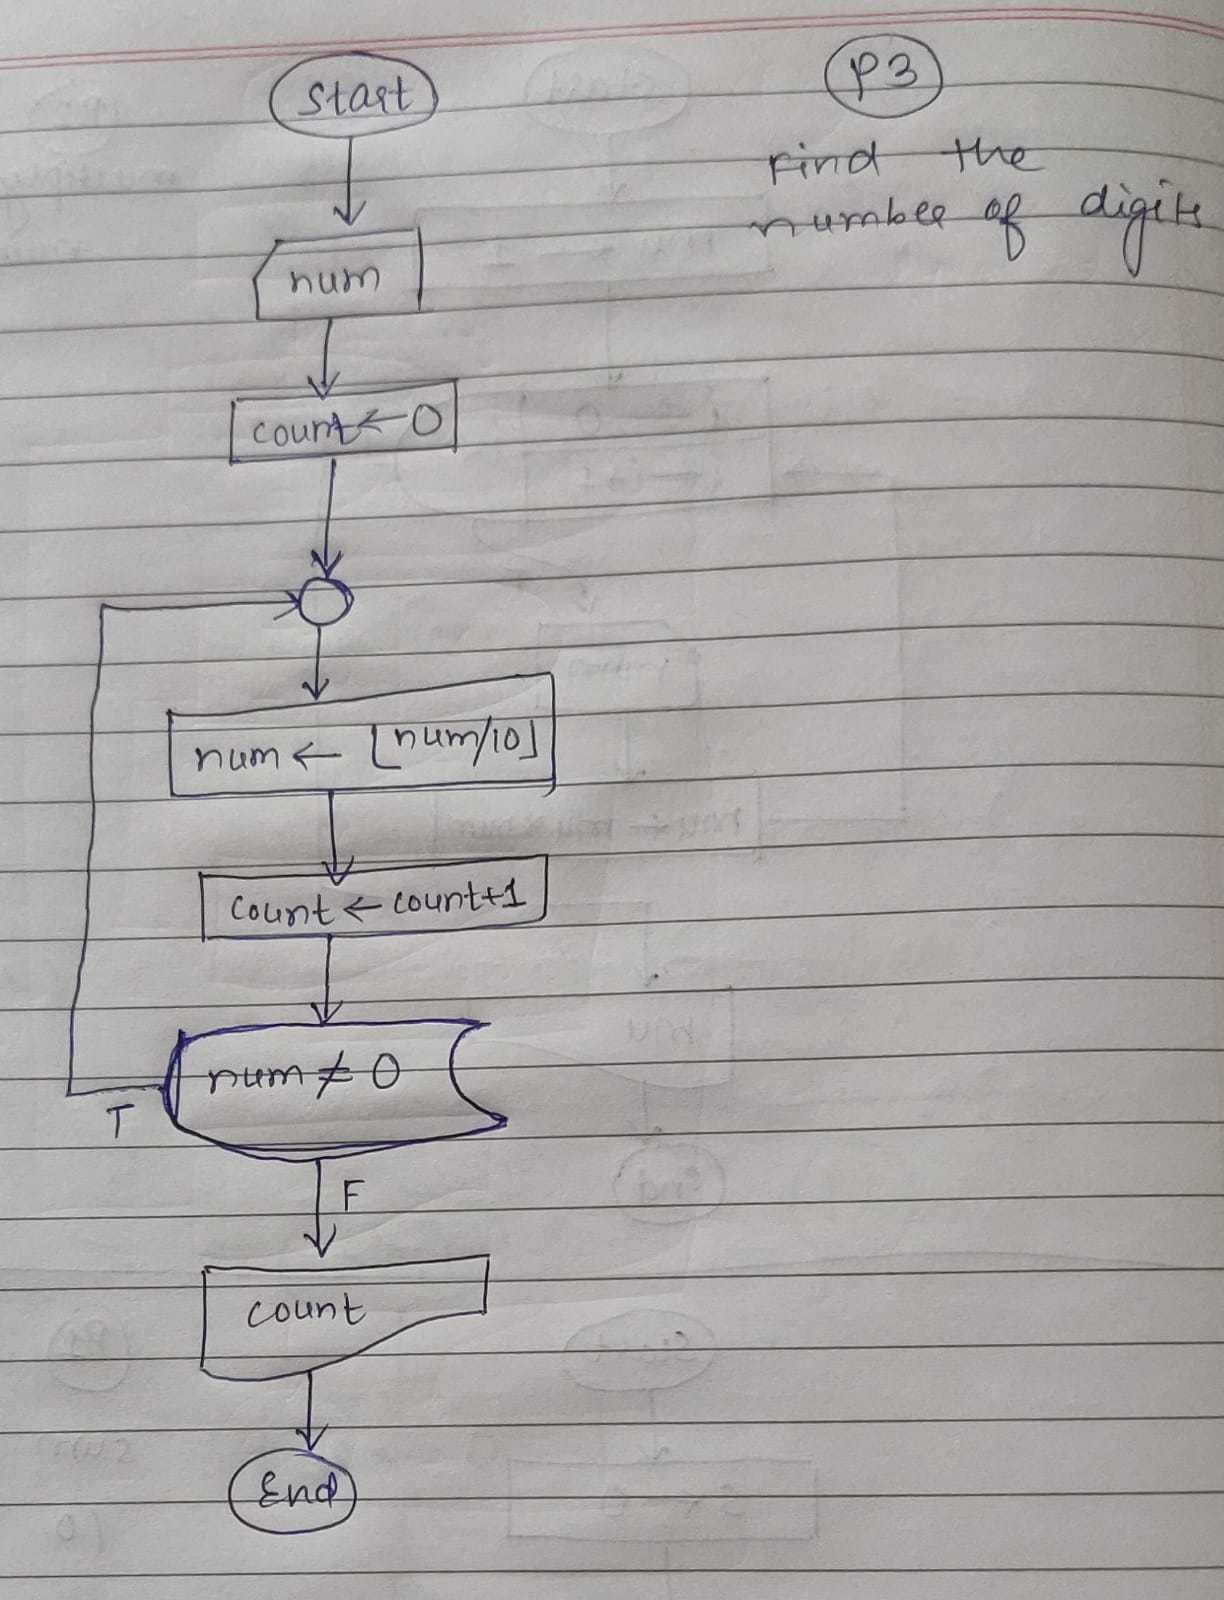 Start
P3
Find the
number of digits
num
count ← 0
num ← ⌊num/10⌋
count ← count+1
num ≠ 0
T
F
count
End